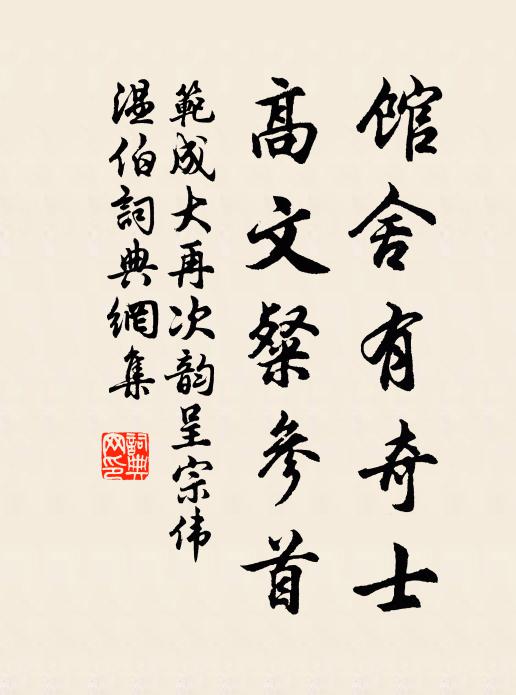 馆舍有奇士
高文粲参首
範成大再次韵呈宗伟
温伯詞典網集
詞典网印